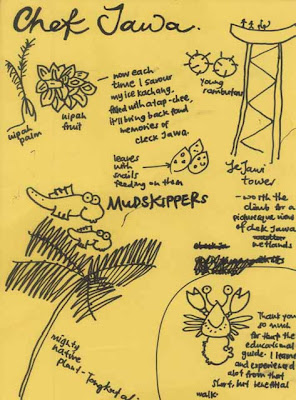 Chek Jawa.
nipah
palm
nipah
fruit
- now each
time I savour
my ice kachang
filled with atap-chee,
it'll bring back fond
memories of
check Jawa.
young
rambutans
leaves
with
snails
feeding on them
JeJawi
tower
- worth the
climb for a
picturesque view
of chek Jawa
wetlands
MUDSKIPPERS
mighty
native
plant - Tongkat ali
Thank you
so much
for the
educational
guide. I learned
and experienced
alot from that
short, but beneficial
walk.